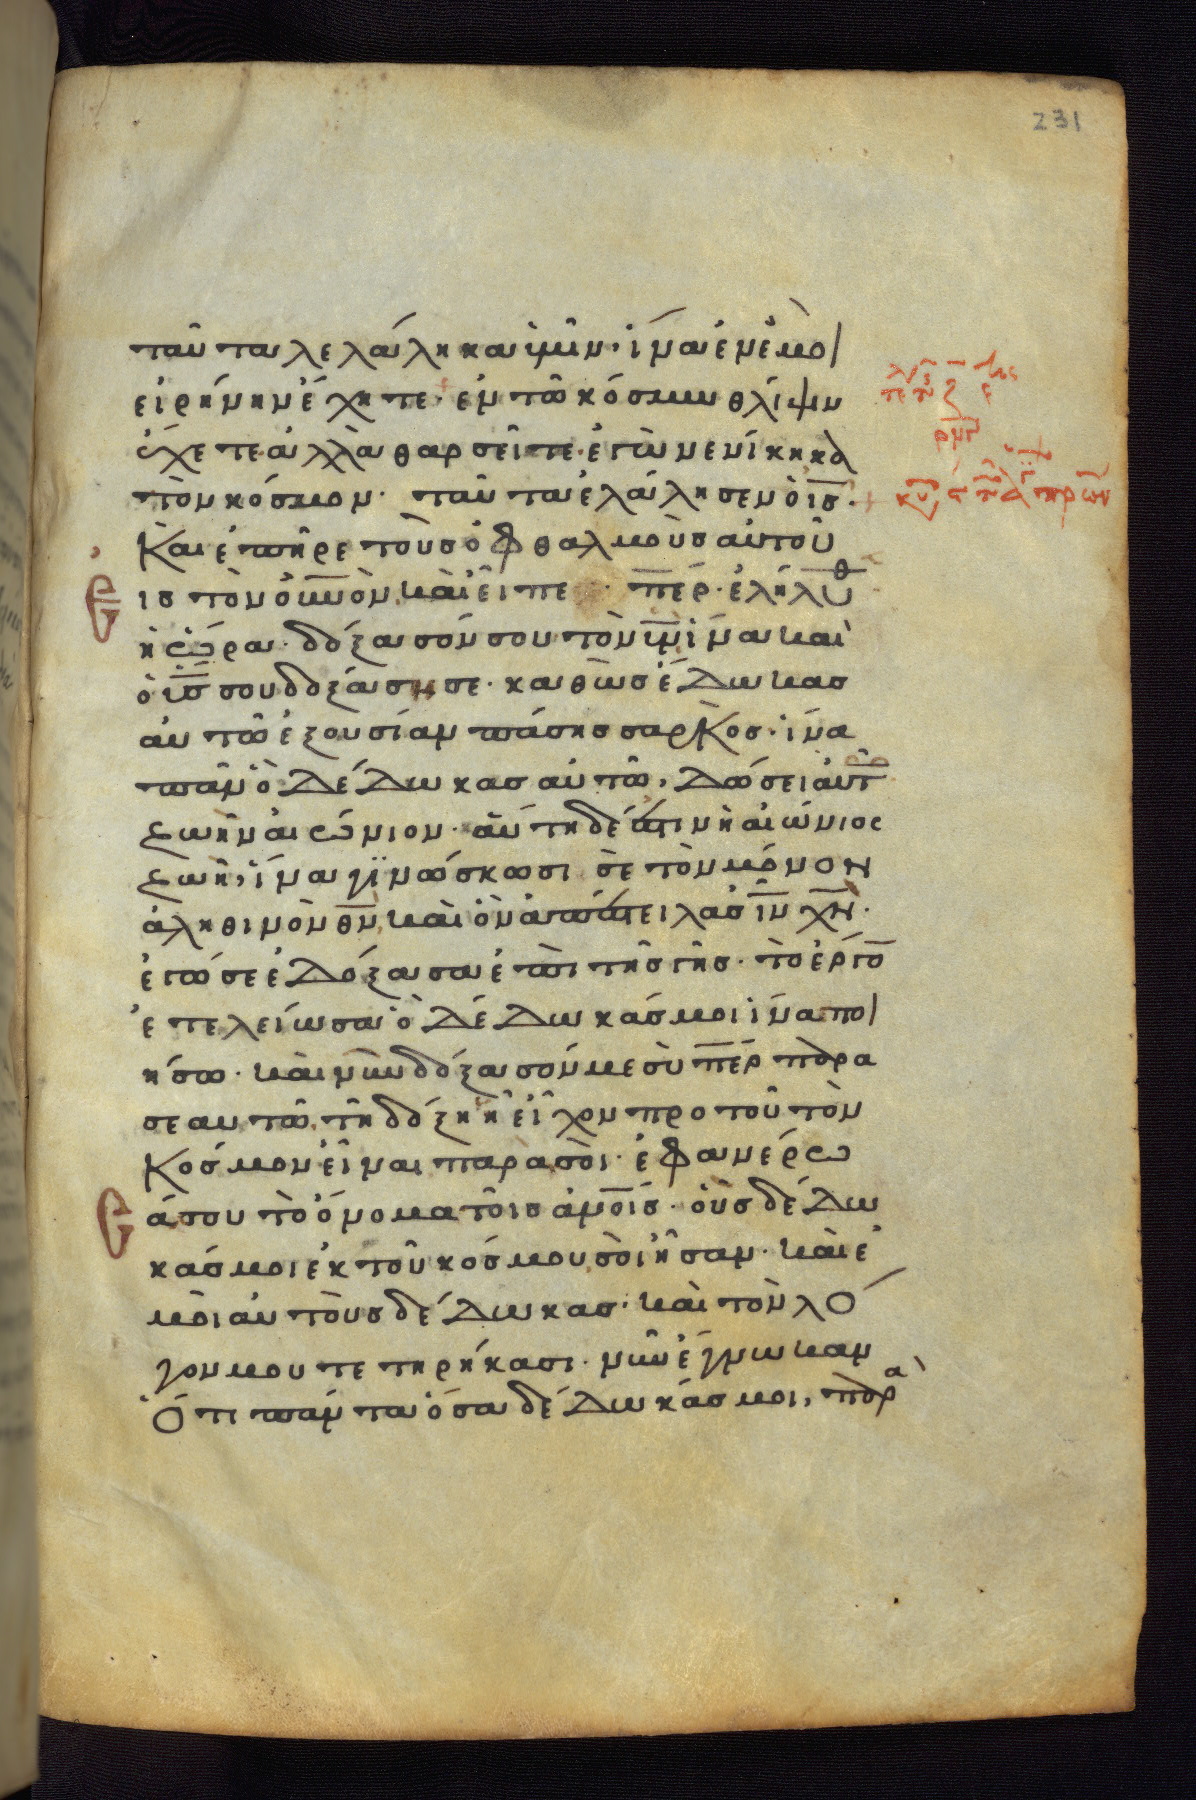 231
ταῦτα λελάληκα ὑμῖν· ἵνα ἐν ἐμοὶ
εἰρήνην ἔχητε· ἐν τῶ κόσμω θλίψιν
ἔχετε ἀλλὰ θαρσεῖτε· ἐγὼ νενίκηκα
τὸν κόσμον· ταῦτα ἐλάλησεν ὁ ις·
Καὶ ἐπῆρε τοὺς ὀφθαλμοὺς αὐτοῦ
ις τὸν οὐνον, καὶ εἶπε · περ· ἐλήλυθ
ἡ ὥρα· δόξασόν σου τὸν υν ἵνα καὶ
ὁ υς σου δοξάσησε· καθὼς ἔδωκας
αὐτῶ ἐξουσίαν πάσης σαρκός· ἵνα
πᾶν ὃ δέδωκας αὐτῶ, δώσει αὐτ
ζωὴν αἰώνιον· αὕτη δέ ἐστιν ἡ αἰώνιος
ζωὴ, ἵνα γινώσκωσι σὲ τὸν μόνον
ἀληθινὸν θν, καὶ ὃν ἀπέστειλας ιν χν·
ἐγώ σε ἐδόξασα ἐπὶ τῆς γῆς· τὸ ἔργο
ἐτελείωσα ὃ δέδωκάς μοι ἵνα ποι
ήσω· καὶ νῦν δόξασόν με σὺ περ παρα
σεαυτῶ, τῆ δόξη ἧ εἶχον προ τοῦ τὸν
Κόσμον εἶναι παρα σοί· ἐφανέρω
σά σου τὸ ὄνομα τοῖς ανοις· οὓς δέδω
κάς μοι ἐκ τοῦ κόσμου σοὶ ἦσαν· καὶ ἐ
μοὶ αὐτοὺς δέδωκας· καὶ τὸν λό
γον μου τετηρήκασι· νῦν ἔγνωκαν
Ὅτι πάντα ὅσα δέδωκάς μοι, παρὰ